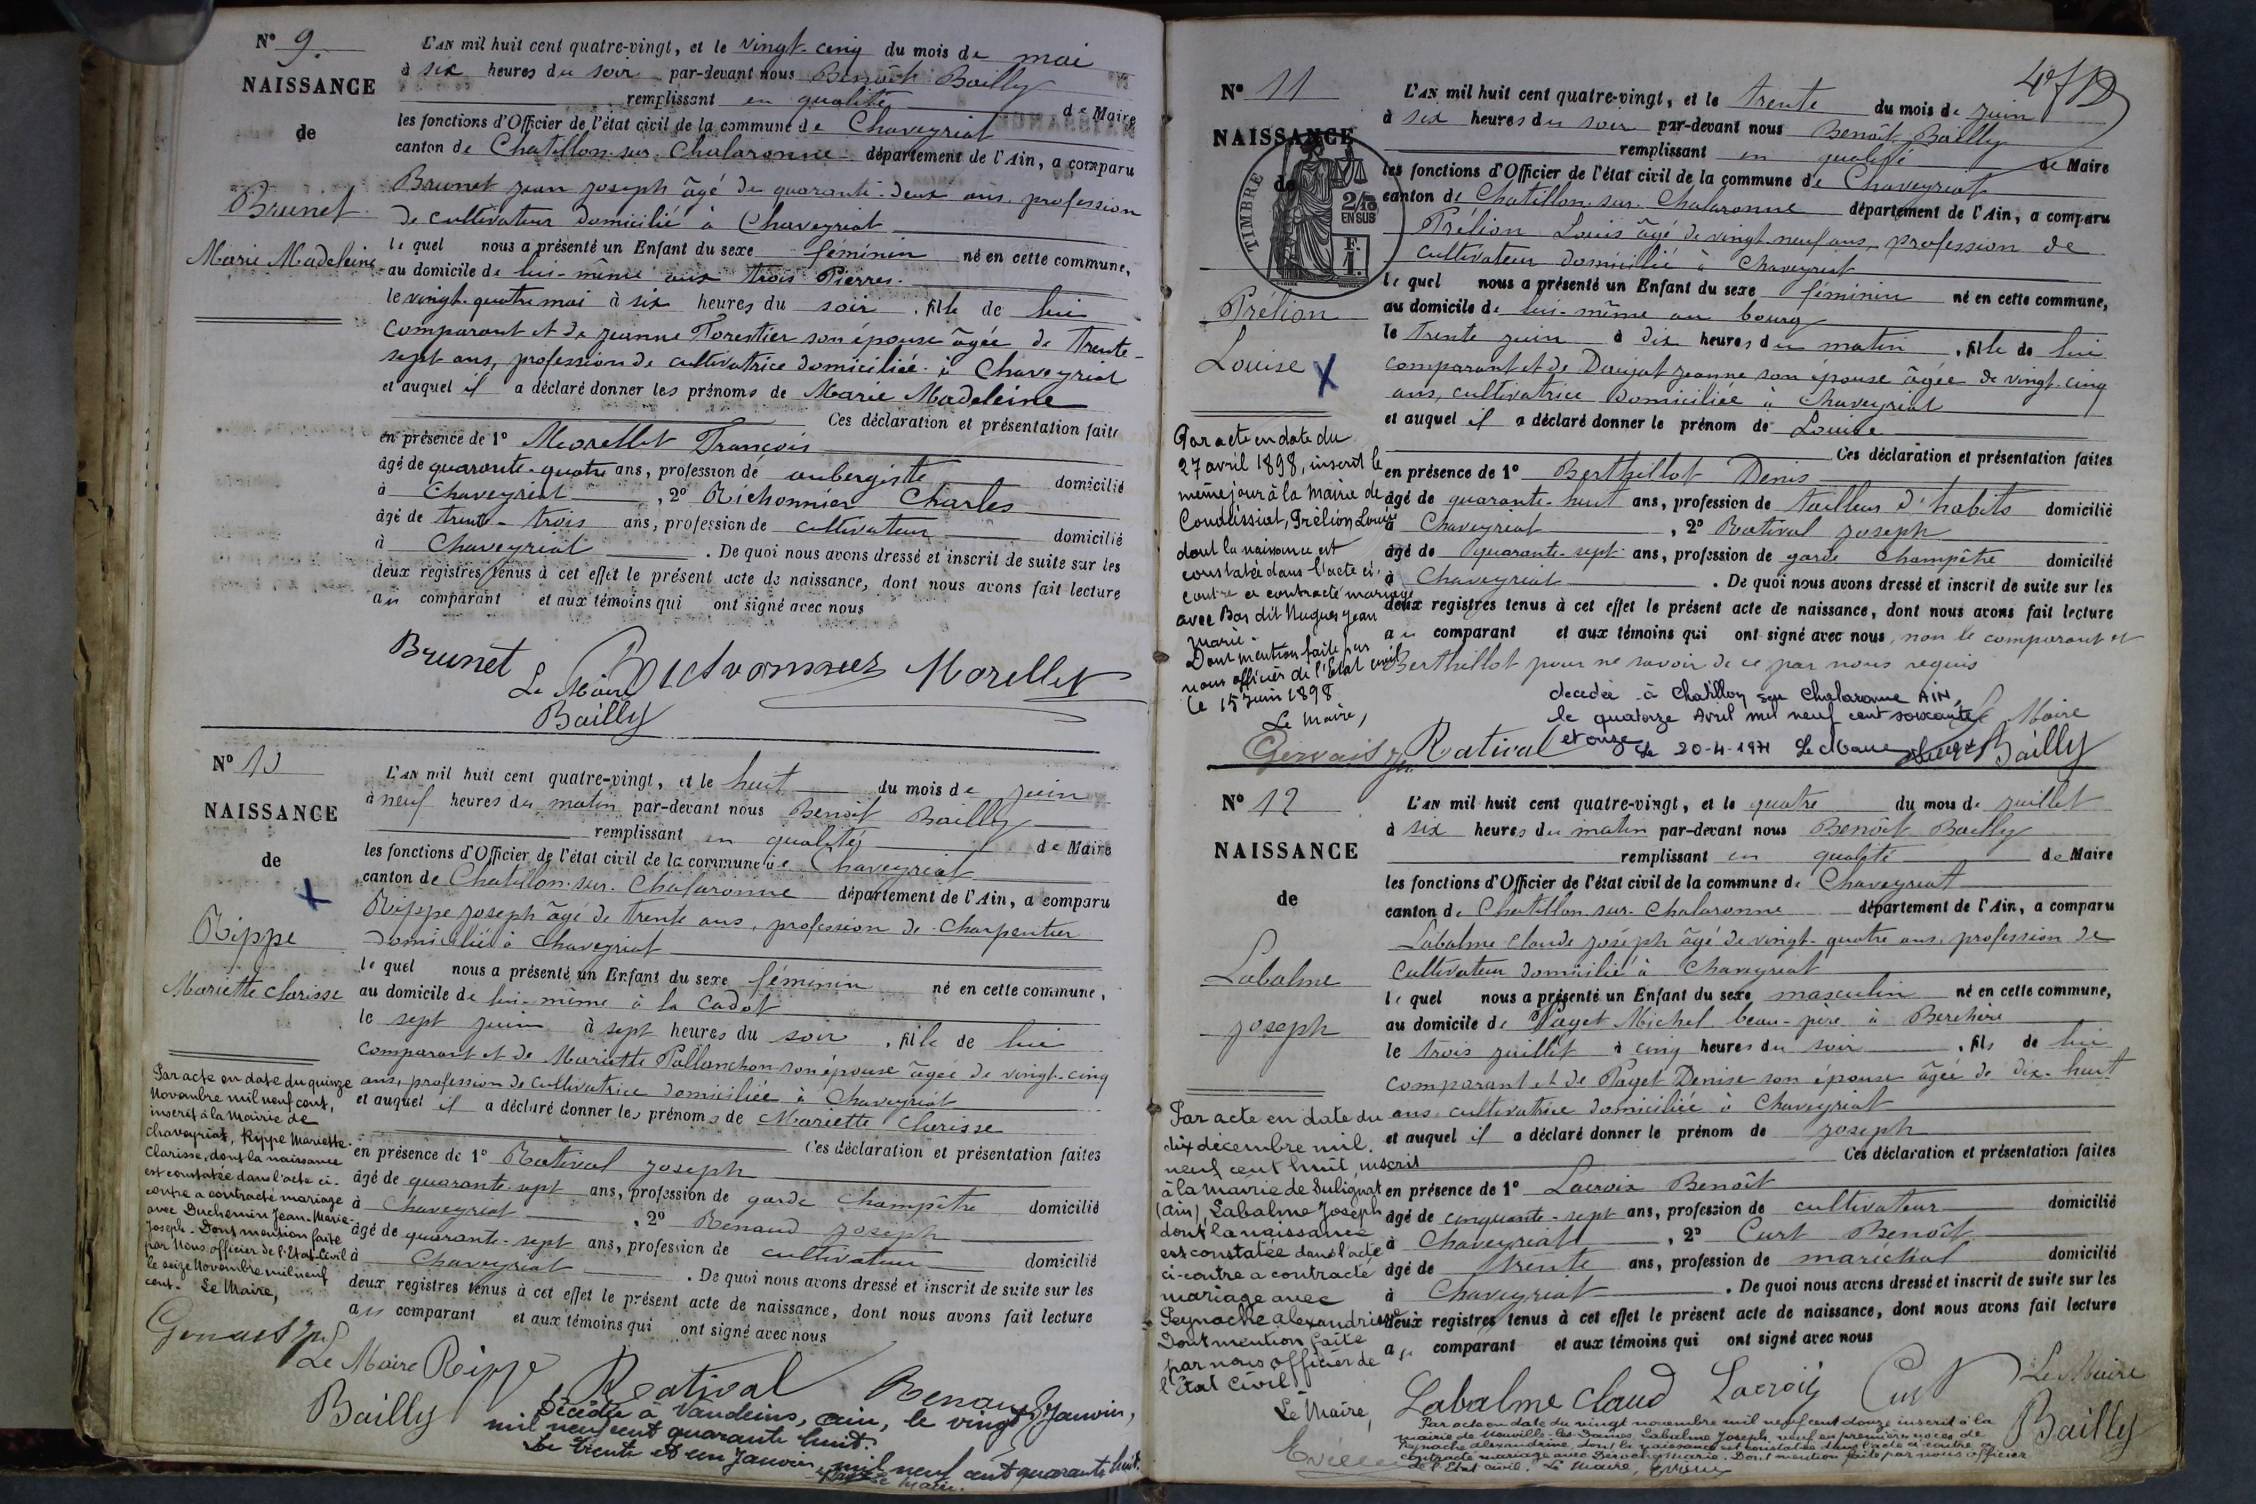 N° 9.
NAISSANCE
de
Brunet
Marie Madeleine
L'AN mil huit cent quatre-vingt, et le vingt-cinq du mois de mai
à six heures du soir par-devant nous Benoît Bailly
remplissant en qualité de Maire
les fonctions d'Officier de l'état civil de la commune de Chaveyriat
canton de Chatillon-sur-Chalaronne département de l'Ain, a comparu
Brunet Jean Joseph âgé de quarante-deux ans profession
de cultivateur domicilié à Chaveyriat
lequel nous a présenté un Enfant du sexe féminin né en cette commune,
au domicile de lui-même aux trois Pierres.
le vingt-quatre mai à six heures du soir, fille de lui
comparant et de Jeanne Forestier son épouse âgée de trente-
sept ans, profession de cultivatrice domiciliée à Chaveyriat
et auquel il a déclaré donner les prénoms de Marie Madeleine
Ces déclaration et présentation faites
en présence de 1° Morellet François
âgé de quarante-quatre ans, profession de aubergiste domicilié
à Chaveyriat, 2° Richonnier Charles
âgé de trente-trois ans, profession de cultivateur domicilié
à Chaveyriat. De quoi nous avons dressé et inscrit de suite sur les
deux registres tenus à cet effet le présent acte de naissance, dont nous avons fait lecture
au comparant et aux témoins qui ont signé avec nous
Brunet Morellet
Le Maire
Bailly
N° 10
NAISSANCE
de
Rippe
Mariette Clarisse
L'AN mil huit cent quatre-vingt, et le huit du mois de juin
à neuf heures du matin par-devant nous Benoît Bailly
remplissant en qualité de Maire
les fonctions d'Officier de l'état civil de la commune de Chaveyriat
canton de Chatillon-sur-Chalaronne département de l'Ain, a comparu
Rippe Joseph âgé de trente ans, profession de Charpentier
domicilié à Chaveyriat
lequel nous a présenté un Enfant du sexe féminin né en cette commune,
au domicile de lui-même à la Cadot
le sept juin à sept heures du soir, fille de lui
comparant et de Mariette Pallanchon son épouse âgée de vingt-cinq
ans, profession de cultivatrice domiciliée à Chaveyriat
et auquel il a déclaré donner les prénoms de Mariette Clarisse
Ces déclaration et présentation faites
en présence de 1° Rativat Joseph
âgé de quarante-sept ans, profession de garde champêtre domicilié
à Chaveyriat, 2° Renaud Joseph
âgé de quarante-sept ans, profession de cultivateur domicilié
à Chaveyriat. De quoi nous avons dressé et inscrit de suite sur les
deux registres tenus à cet effet le présent acte de naissance, dont nous avons fait lecture
au comparant et aux témoins qui ont signé avec nous
Par acte en date du quinze
Novembre mil neuf cent,
inscrit à la Mairie de
Chaveyriat, Rippe Mariette
Clarisse, dont la naissance
est constatée dans l'acte ci-
contre a contracté mariage
avec Duchemin Jean-Marie-
Joseph. Dont mention faite
par Nous officier de l'Etat-Civil
le seize Novembre mil neuf
cent. Le Maire,
Gervais
Le Maire Rippe Rativat Renaud
Bailly
Décédée à Vandeins, Ain, le vingt Janvier,
mil neuf cent quarante huit.
Le trente et un Janvier mil neuf cent quarante huit.
N° 11
NAISSANCE
de
TIMBRE
2/10
EN SUS
F.
1.
Prélion
Louise X
L'AN mil huit cent quatre-vingt, et le trente du mois de juin
à six heures du soir par-devant nous Benoît Bailly
remplissant en qualité de Maire
les fonctions d'Officier de l'état civil de la commune de Chaveyriat
canton de Chatillon-sur-Chalaronne département de l'Ain, a comparu
Prélion Louis âgé de vingt-neuf ans, profession de
cultivateur domicilié à Chaveyriat
lequel nous a présenté un Enfant du sexe féminin né en cette commune,
au domicile de lui-même au bourg
le trente juin à dix heures du matin, fille de lui
comparant et de Daujat Jeanne son épouse âgée de vingt-cinq
ans, cultivatrice domiciliée à Chaveyriat
et auquel il a déclaré donner le prénom de Louise
Ces déclaration et présentation faites
en présence de 1° Berthillot Denis
âgé de quarante-huit ans, profession de tailleur d'habits domicilié
à Chaveyriat, 2° Rativat Joseph
âgé de quarante-sept ans, profession de garde champêtre domicilié
à Chaveyriat. De quoi nous avons dressé et inscrit de suite sur les
deux registres tenus à cet effet le présent acte de naissance, dont nous avons fait lecture
au comparant et aux témoins qui ont signé avec nous, non le comparant et
Berthillot pour ne savoir de ce par nous requis
Par acte en date du
27 avril 1898, inscrit le
même jour à la Mairie de
Condeissiat, Prélion Louise
dont la naissance est
constatée dans l'acte ci-
contre a contracté mariage
avec Bas dit Nugues Jean
Marie.
Dont mention faite par
nous officier de l'Etat civil
le 15 juin 1898
Le Maire,
Gervais
décédée à Chatillon sur Chalaronne AIN
le quatorze Avril mil neuf cent soixante
et onze Le 20-4-1971 Le Maire
Rativat
Le Maire
Bailly
N° 12
NAISSANCE
de
Labalme
Joseph
L'AN mil huit cent quatre-vingt, et le quatre du mois de juillet
à six heures du matin par-devant nous Benoît Bailly
remplissant en qualité de Maire
les fonctions d'Officier de l'état civil de la commune de Chaveyriat
canton de Chatillon-sur-Chalaronne département de l'Ain, a comparu
Labalme Claude Joseph âgé de vingt-quatre ans, profession de
cultivateur domicilié à Chaveyriat
lequel nous a présenté un Enfant du sexe masculin né en cette commune,
au domicile de Paget Michel beau-père à
le trois juillet à cinq heures du soir, fils de lui
comparant et de Paget Denise son épouse âgée de dix-huit
ans cultivatrice domiciliée à Chaveyriat
et auquel il a déclaré donner le prénom de Joseph
Ces déclaration et présentation faites
en présence de 1° Lacroix Benoît
âgé de cinquante-sept ans, profession de cultivateur domicilié
à Chaveyriat, 2° Curt Benoît
âgé de trente ans, profession de maréchal domicilié
à Chaveyriat. De quoi nous avons dressé et inscrit de suite sur les
deux registres tenus à cet effet le présent acte de naissance, dont nous avons fait lecture
au comparant et aux témoins qui ont signé avec nous
Par acte en date du
dix décembre mil
neuf cent huit, inscrit
à la Mairie de Sulignat
(Ain) Labalme Joseph
dont la naissance
est constatée dans l'acte
ci-contre a contracté
mariage avec
Peynache Alexandrine
Dont mention faite
par nous officier de
l'Etat Civil
Le Maire,
Labalme Claud Lacroix Curt Le Maire
Bailly
Par acte en date du vingt novembre mil neuf cent douze inscrit à la
mairie de Neuville-les-Dames, Labalme Joseph, veuf en premières noces de
Peynache Alexandrine, dont la naissance est constatée dans l'acte ci-contre a
contracté mariage avec Marie. Dont mention faite par nous officier
de l'Etat civil. Le Maire,